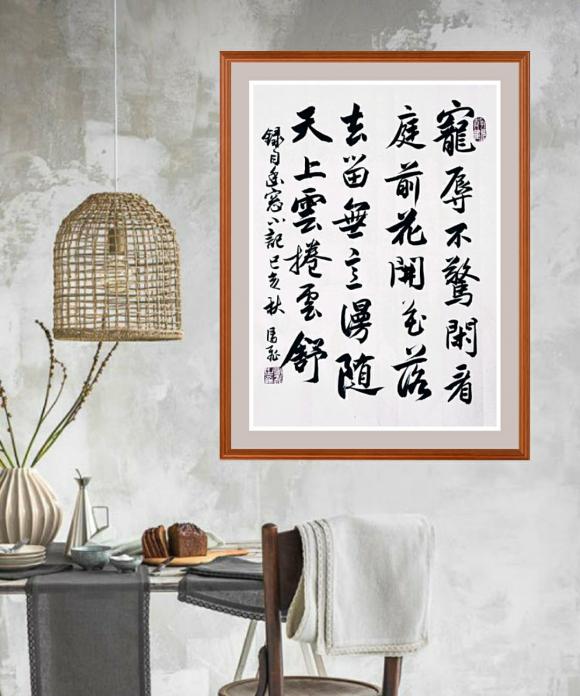 寵辱不驚閑看
庭前花開花落
去留無意漫随
天上雲捲雲舒
録自幽窗小記己亥秋